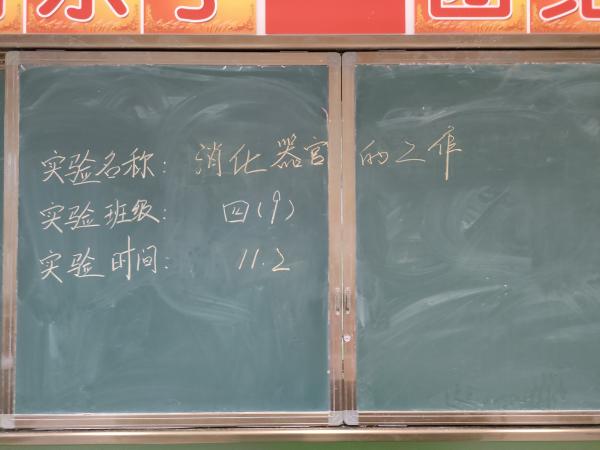 实验名称: 消化器官的工作
实验班级: 四(9)
实验时间: 11.2